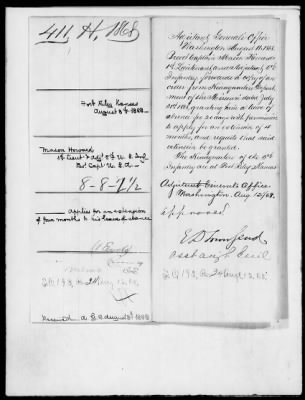 411. H. 1868
Fort Riley Kansas
August 8th 1868.
Mason Howard
1st Lieut & Adjt 5th U.S. Inf
Bvt. Capt U.S.A.
8-8-7 1/2
applies for an extension
of four months to his leave of absence
S.O. 193, Par 24 Aug 12, 68.
Received A.G.O. August 1868
Adjutant General's Office
Washington August 11. 1868
Brevet Captain Mason Howard
1st Lieutenant and Adjutant 5th
Infantry forwards a copy of an
order from Headquarters Depart-
ment of the Missouri dated July
31st 1868, granting him a leave of
absence for 30 days with permission
to apply for an extension of 4
months, and requests that said
extension be granted.
The Headquarters of the 5th
Infantry are at Fort Riley Kansas
Adjutant General's Office
Washington, Aug. 12/68.
approved
E D Townsend
asst adjt Genl
S.O. 193, Par 24 Aug 12, 68.